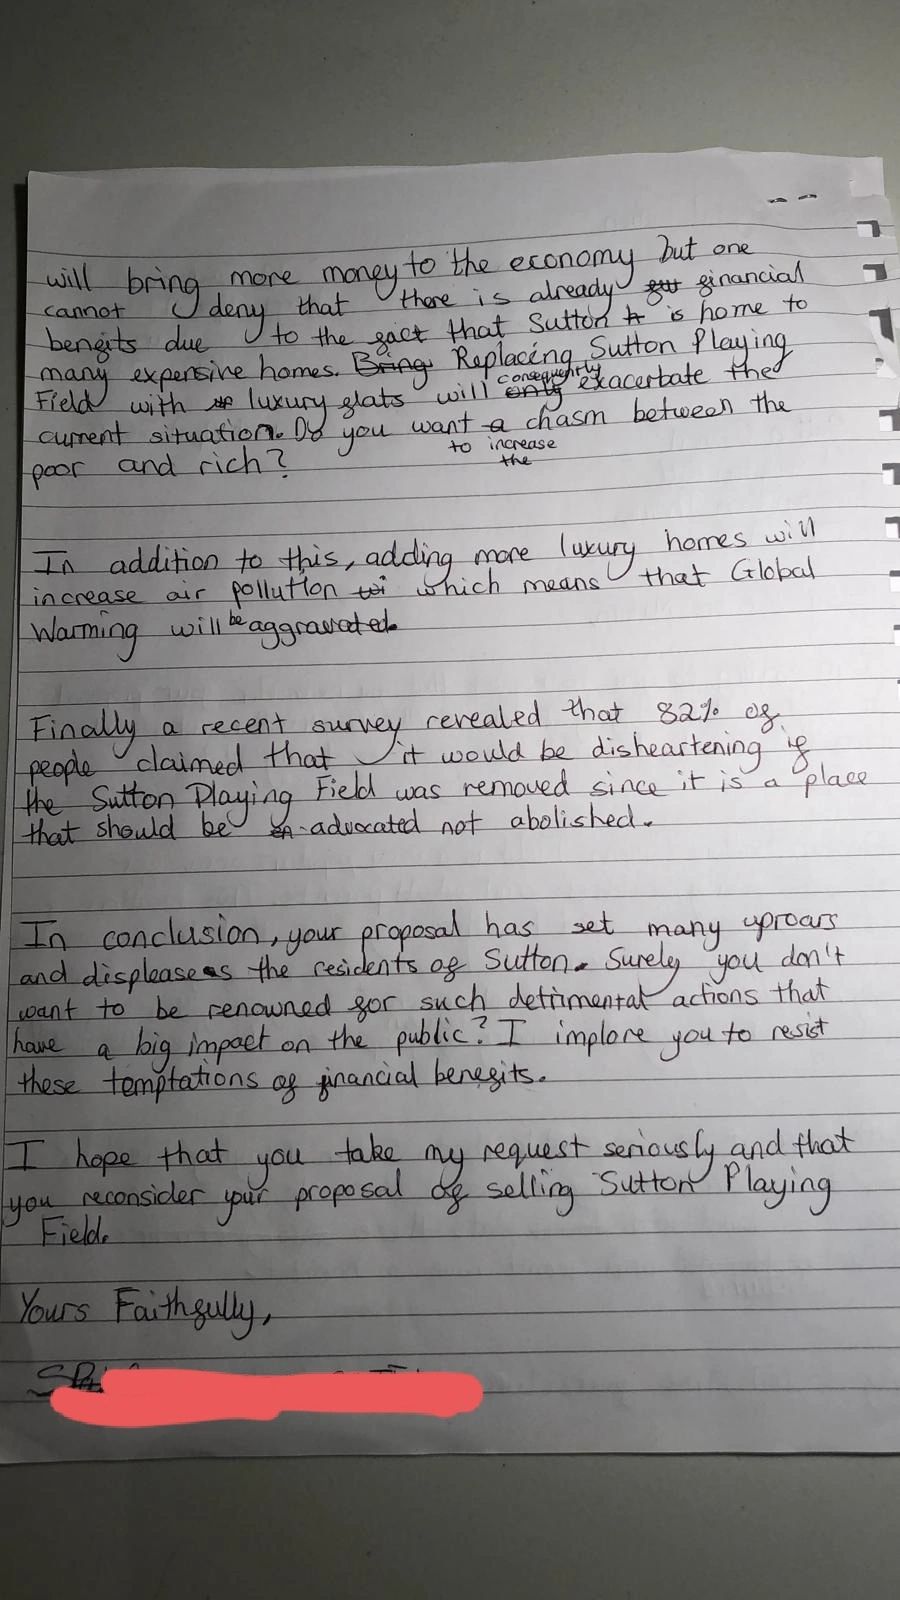 will bring more money to the economy but one
cannot deny that there is already financial
benefits due to the fact that Sutton is home to
many expensive homes. Bring Replacing Sutton Playing
Field with luxury flats will consequently exacerbate the
current situation. Do you want to increase the chasm between the
poor and rich?
In addition to this, adding more luxury homes will
increase air pollution which means that Global
Warming will be aggravated.
Finally a recent survey revealed that 82% of
people claimed that it would be disheartening if
the Sutton Playing Field was removed since it is a place
that should be advocated not abolished.
In conclusion, your proposal has set many uproars
and displeases the residents of Sutton. Surely you don't
want to be renowned for such detrimental actions that
have a big impact on the public? I implore you to resist
these temptations of financial benefits.
I hope that you take my request seriously and that
you reconsider your proposal of selling Sutton Playing
Field.
Yours Faithfully,